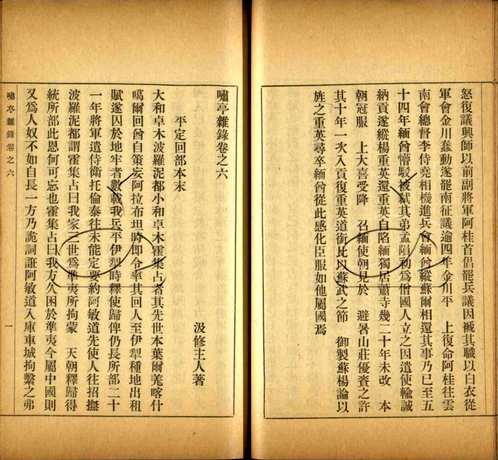 怒復議興師以前副將軍阿桂首倡罷兵議因褫其職以白衣從
軍會金川蠢動遂罷南征議逾四年金川平　上復命阿桂往雲
南會總督李侍堯相機進兵會緬酋縱蘇爾相還其事乃已至五
十四年緬酋懵駁被弒其弟孟隕初爲僧國人立之因遣使輸誠
納貢遂縱楊重英還重英自陷緬獨居蕭寺幾二十年未改　本
朝冠服　上大喜受降　召緬使朝見於　避暑山莊優賚之許
其十年一次入貢復重英道銜比以蘇武之節　御製蘇楊論以
旌之重英尋卒緬酋從此感化臣服如他屬國焉
嘯亭雜錄卷之六
汲修主人著
平定回部本末
大和卓木波羅泥都小和卓木霍集占者其先世本葉爾羌喀什
噶爾回酋自策妄阿拉布坦時即令率其回人至伊犁種地出租
賦遂囚於地牢者數載我兵平伊犁時釋使歸俾仍長所部二十
一年將軍遣侍衛托倫泰往未能定要約阿敏道先使人往招撫
波羅泥都謂霍集占曰我家三世爲準夷所拘蒙　天朝釋歸得
統所部此恩何可忘也霍集占曰我方久困於準夷今屬中國則
又爲人奴不如自長一方乃詭詞誑阿敏道入庫車城拘繫之弗
嘯亭雜錄卷之六　一